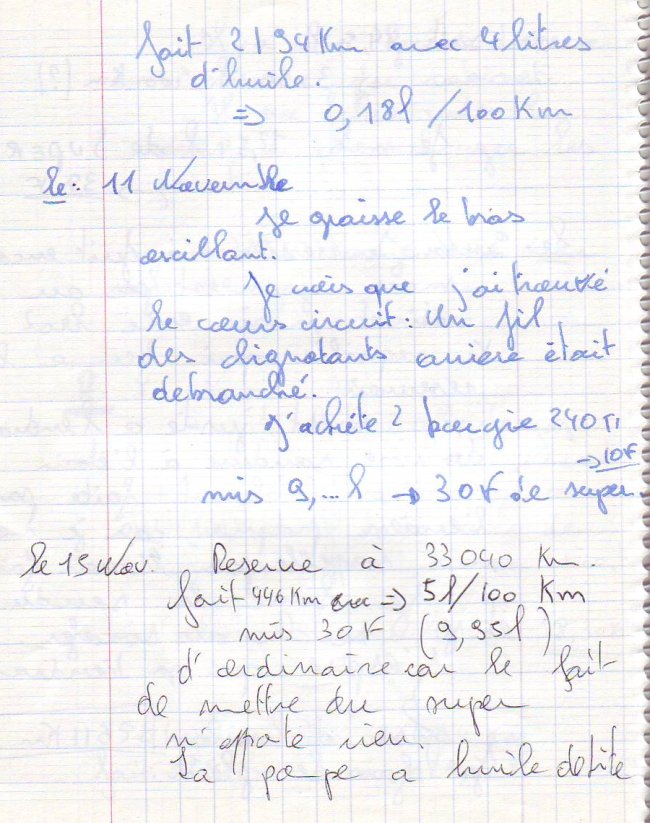 fait 2194 Km avec 4 litres
d'huile.
=> 0,18l / 100 Km
le: 11 Novembre
Je graisse le bras
oscillant.
Je crois que j'ai trouvé
le cours circuit: Un fil
des clignotants arriere était
debranché.
J'achéte 2 bougie 240
→ 10F
mis 9,...l → 30F de super.
le 13 Nov. Reserve à 33040 Km.
fait 446 Km => 5l/100 Km
mis 30F (9,35l)
d'ordinaire car le fait
de mettre du super
n'apporte rien.
La pompe a huile debite